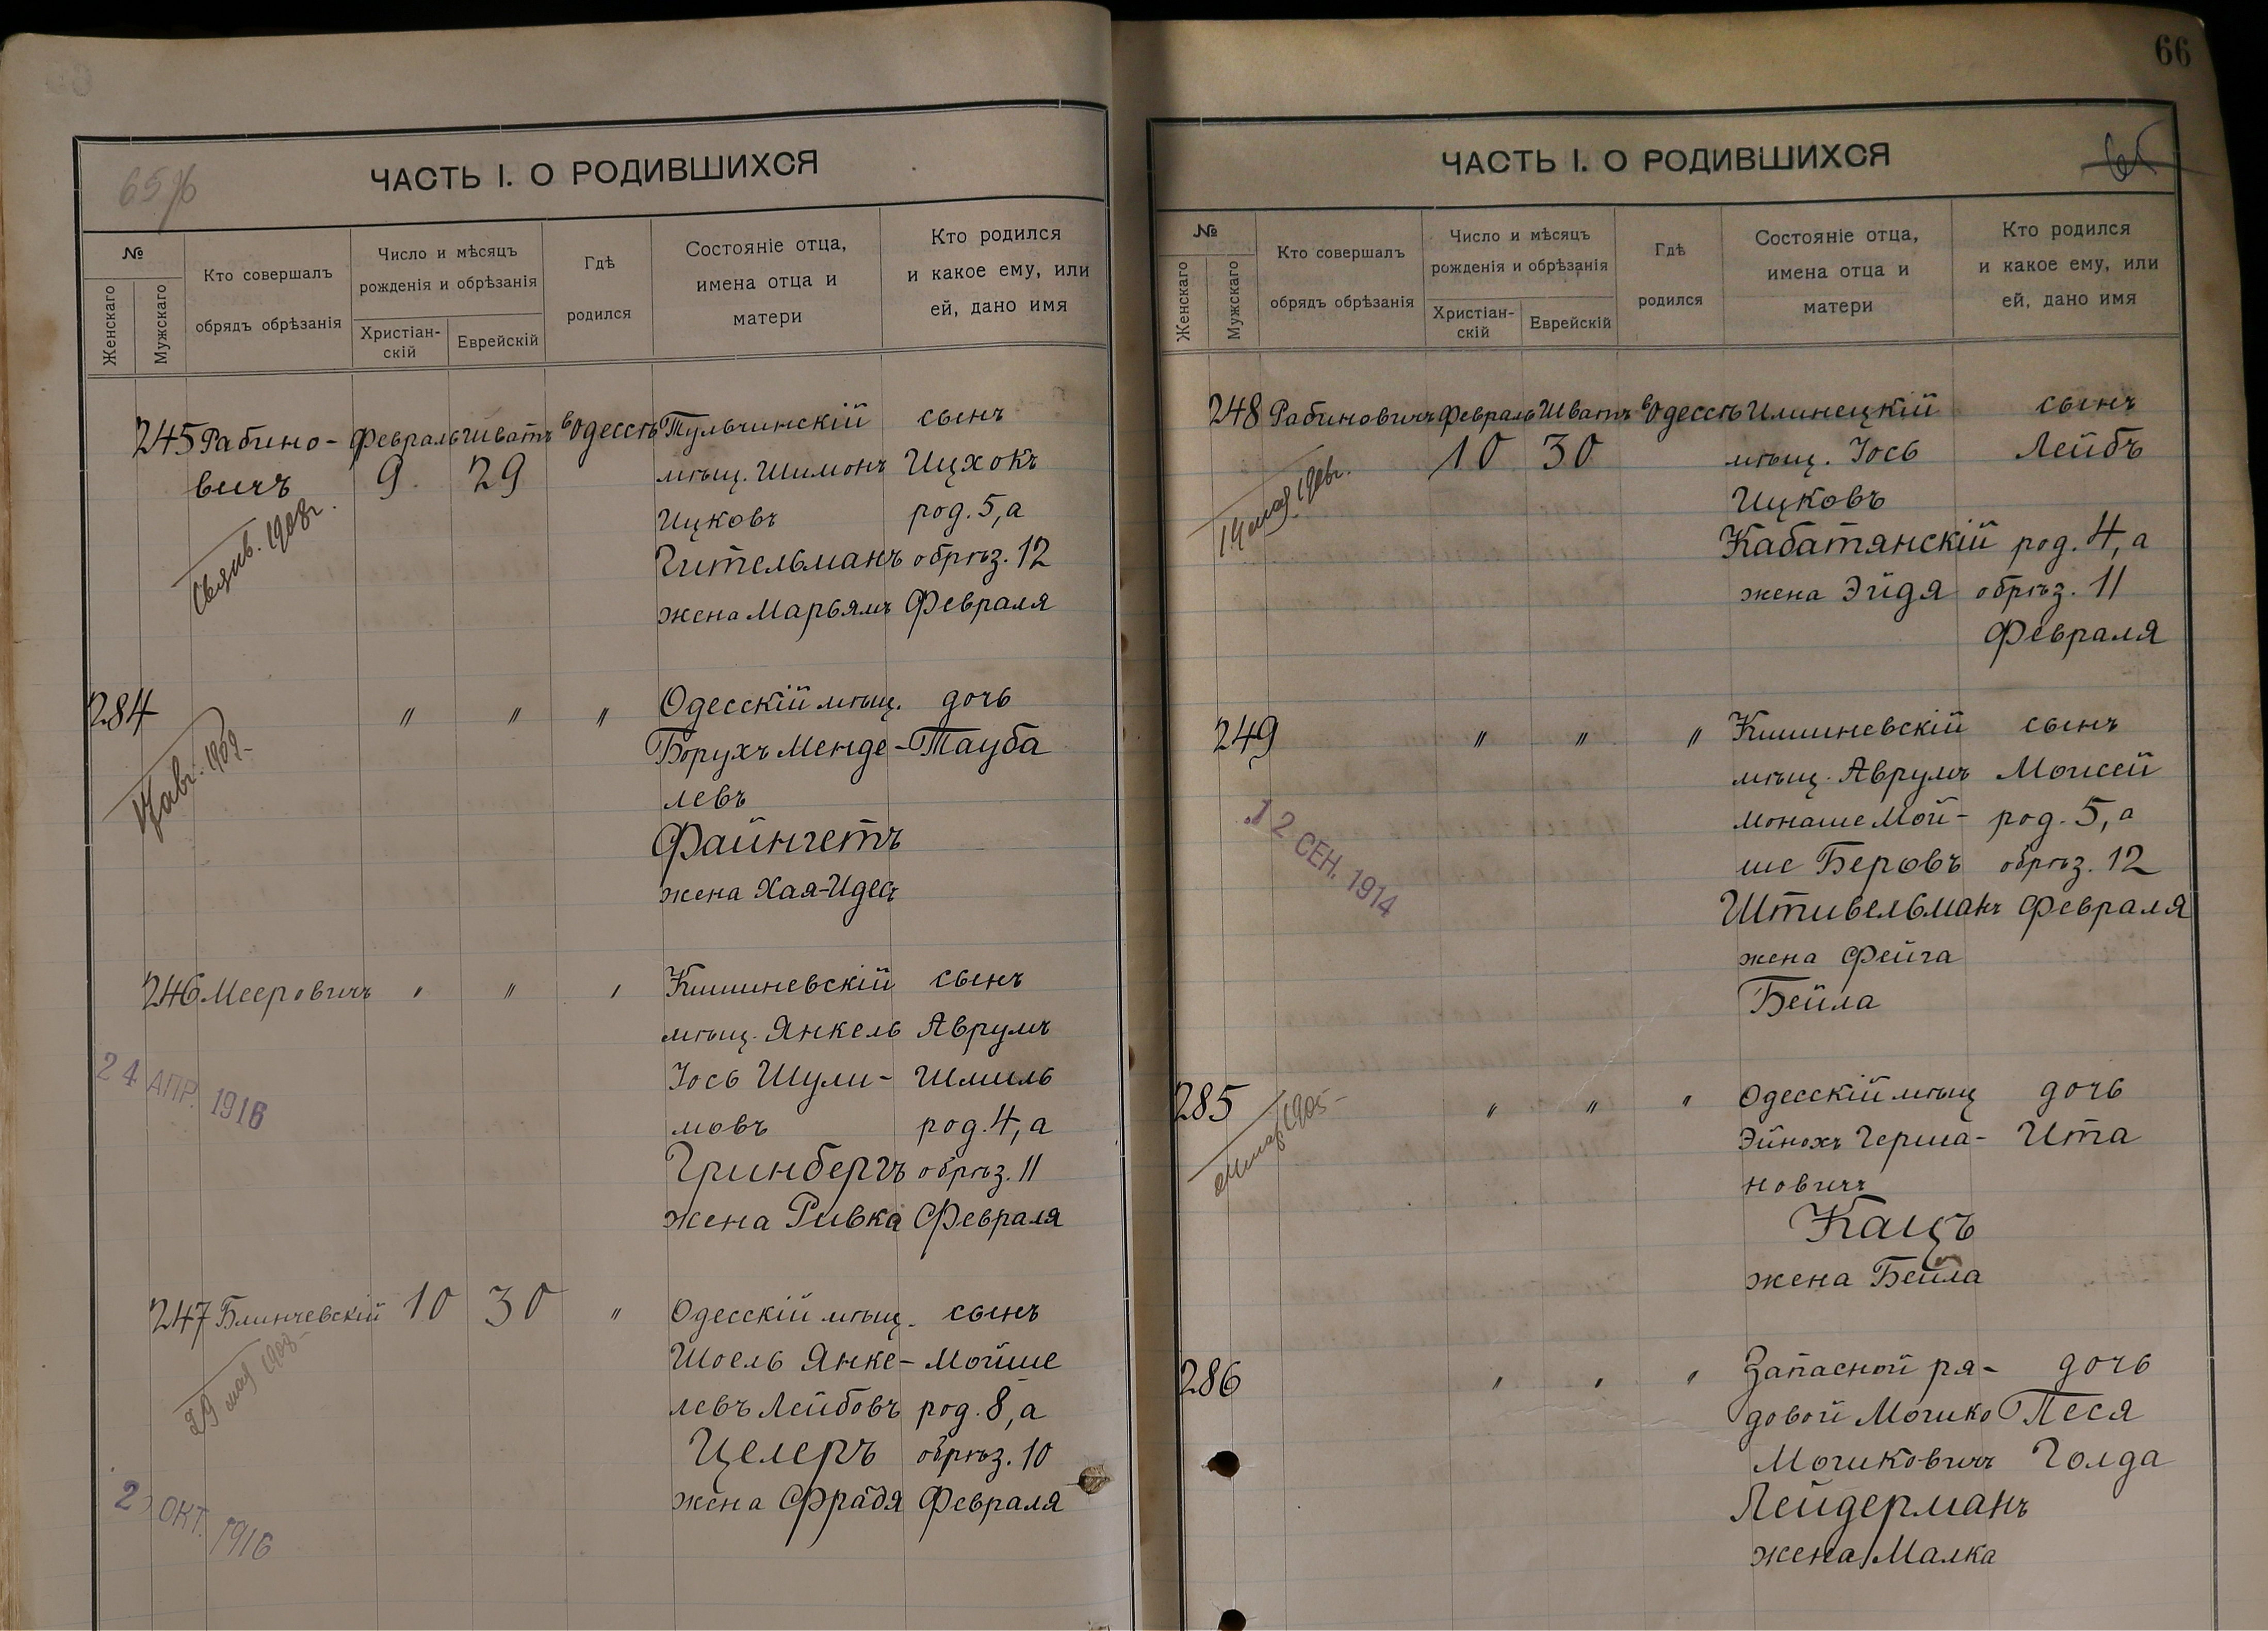 ЧАСТЬ I. О РОДИВШИХСЯ
№
Женскаго
Мужскаго
Кто совершалъ
обрядъ обрѣзанія
Число и мѣсяцъ
рожденія и обрѣзанія
Христіан-
скій
Еврейскій
Гдѣ
родился
Состояніе отца,
имена отца и
матери
Кто родился
и какое ему, или
ей, дано имя
245 Рабино- Февраль Шватъ в Одессѣ Тульчинскій сынъ
вичъ 9 29 мѣщ. Шимонъ Ицхокъ
Ицковъ род. 5, а
Гительманъ обрѣз. 12
жена Марьямъ Февраля
1908г.
284 " " " Одесскій мѣщ. дочь
Борухъ Менде- Тауба
левъ
Файнгетъ
жена Хая-Идесъ
авг. 1909
246 Мееровичъ " " " Кишиневскій сынъ
мѣщ. Янкель Аврумъ
Іось Шули- Шмиль
мовъ род. 4, а
Гринбергъ обрѣз. 11
жена Ривка Февраля
24 АПР. 1916
247 Блинчевскій 10 30 " Одесскій мѣщ. сынъ
Шоель Янке- Мойше
левъ Лейбовъ род. 8, а
Целеръ обрѣз. 10
жена Фрадя Февраля
29 мая 1908
2 ОКТ. 1916
66
ЧАСТЬ I. О РОДИВШИХСЯ
№
Женскаго
Мужскаго
Кто совершалъ
обрядъ обрѣзанія
Число и мѣсяцъ
рожденія и обрѣзанія
Христіан-
скій
Еврейскій
Гдѣ
родился
Состояніе отца,
имена отца и
матери
Кто родился
и какое ему, или
ей, дано имя
248 Рабиновичъ Февраль Шватъ в Одессѣ Илинецкій сынъ
10 30 мѣщ. Іось Лейбъ
Ицковъ
Кабатянскій род. 4, а
жена Эйдя обрѣз. 11
Февраля
249 " " " Кишиневскій сынъ
мѣщ. Аврумъ Моисей
Монаше Мой- род. 5, а
ше Беровъ обрѣз. 12
Штивельманъ Февраля
жена Фейга
Бейла
12 СЕН. 1914
285 " " " Одесскій мѣщ дочь
Эйнохъ Герша- Ита
новичъ
Кацъ
жена Бейла
1905
286 " " " Запасной ря- дочь
довой Мошко Песя
Мошковичъ Голда
Лейдерманъ
жена Малка